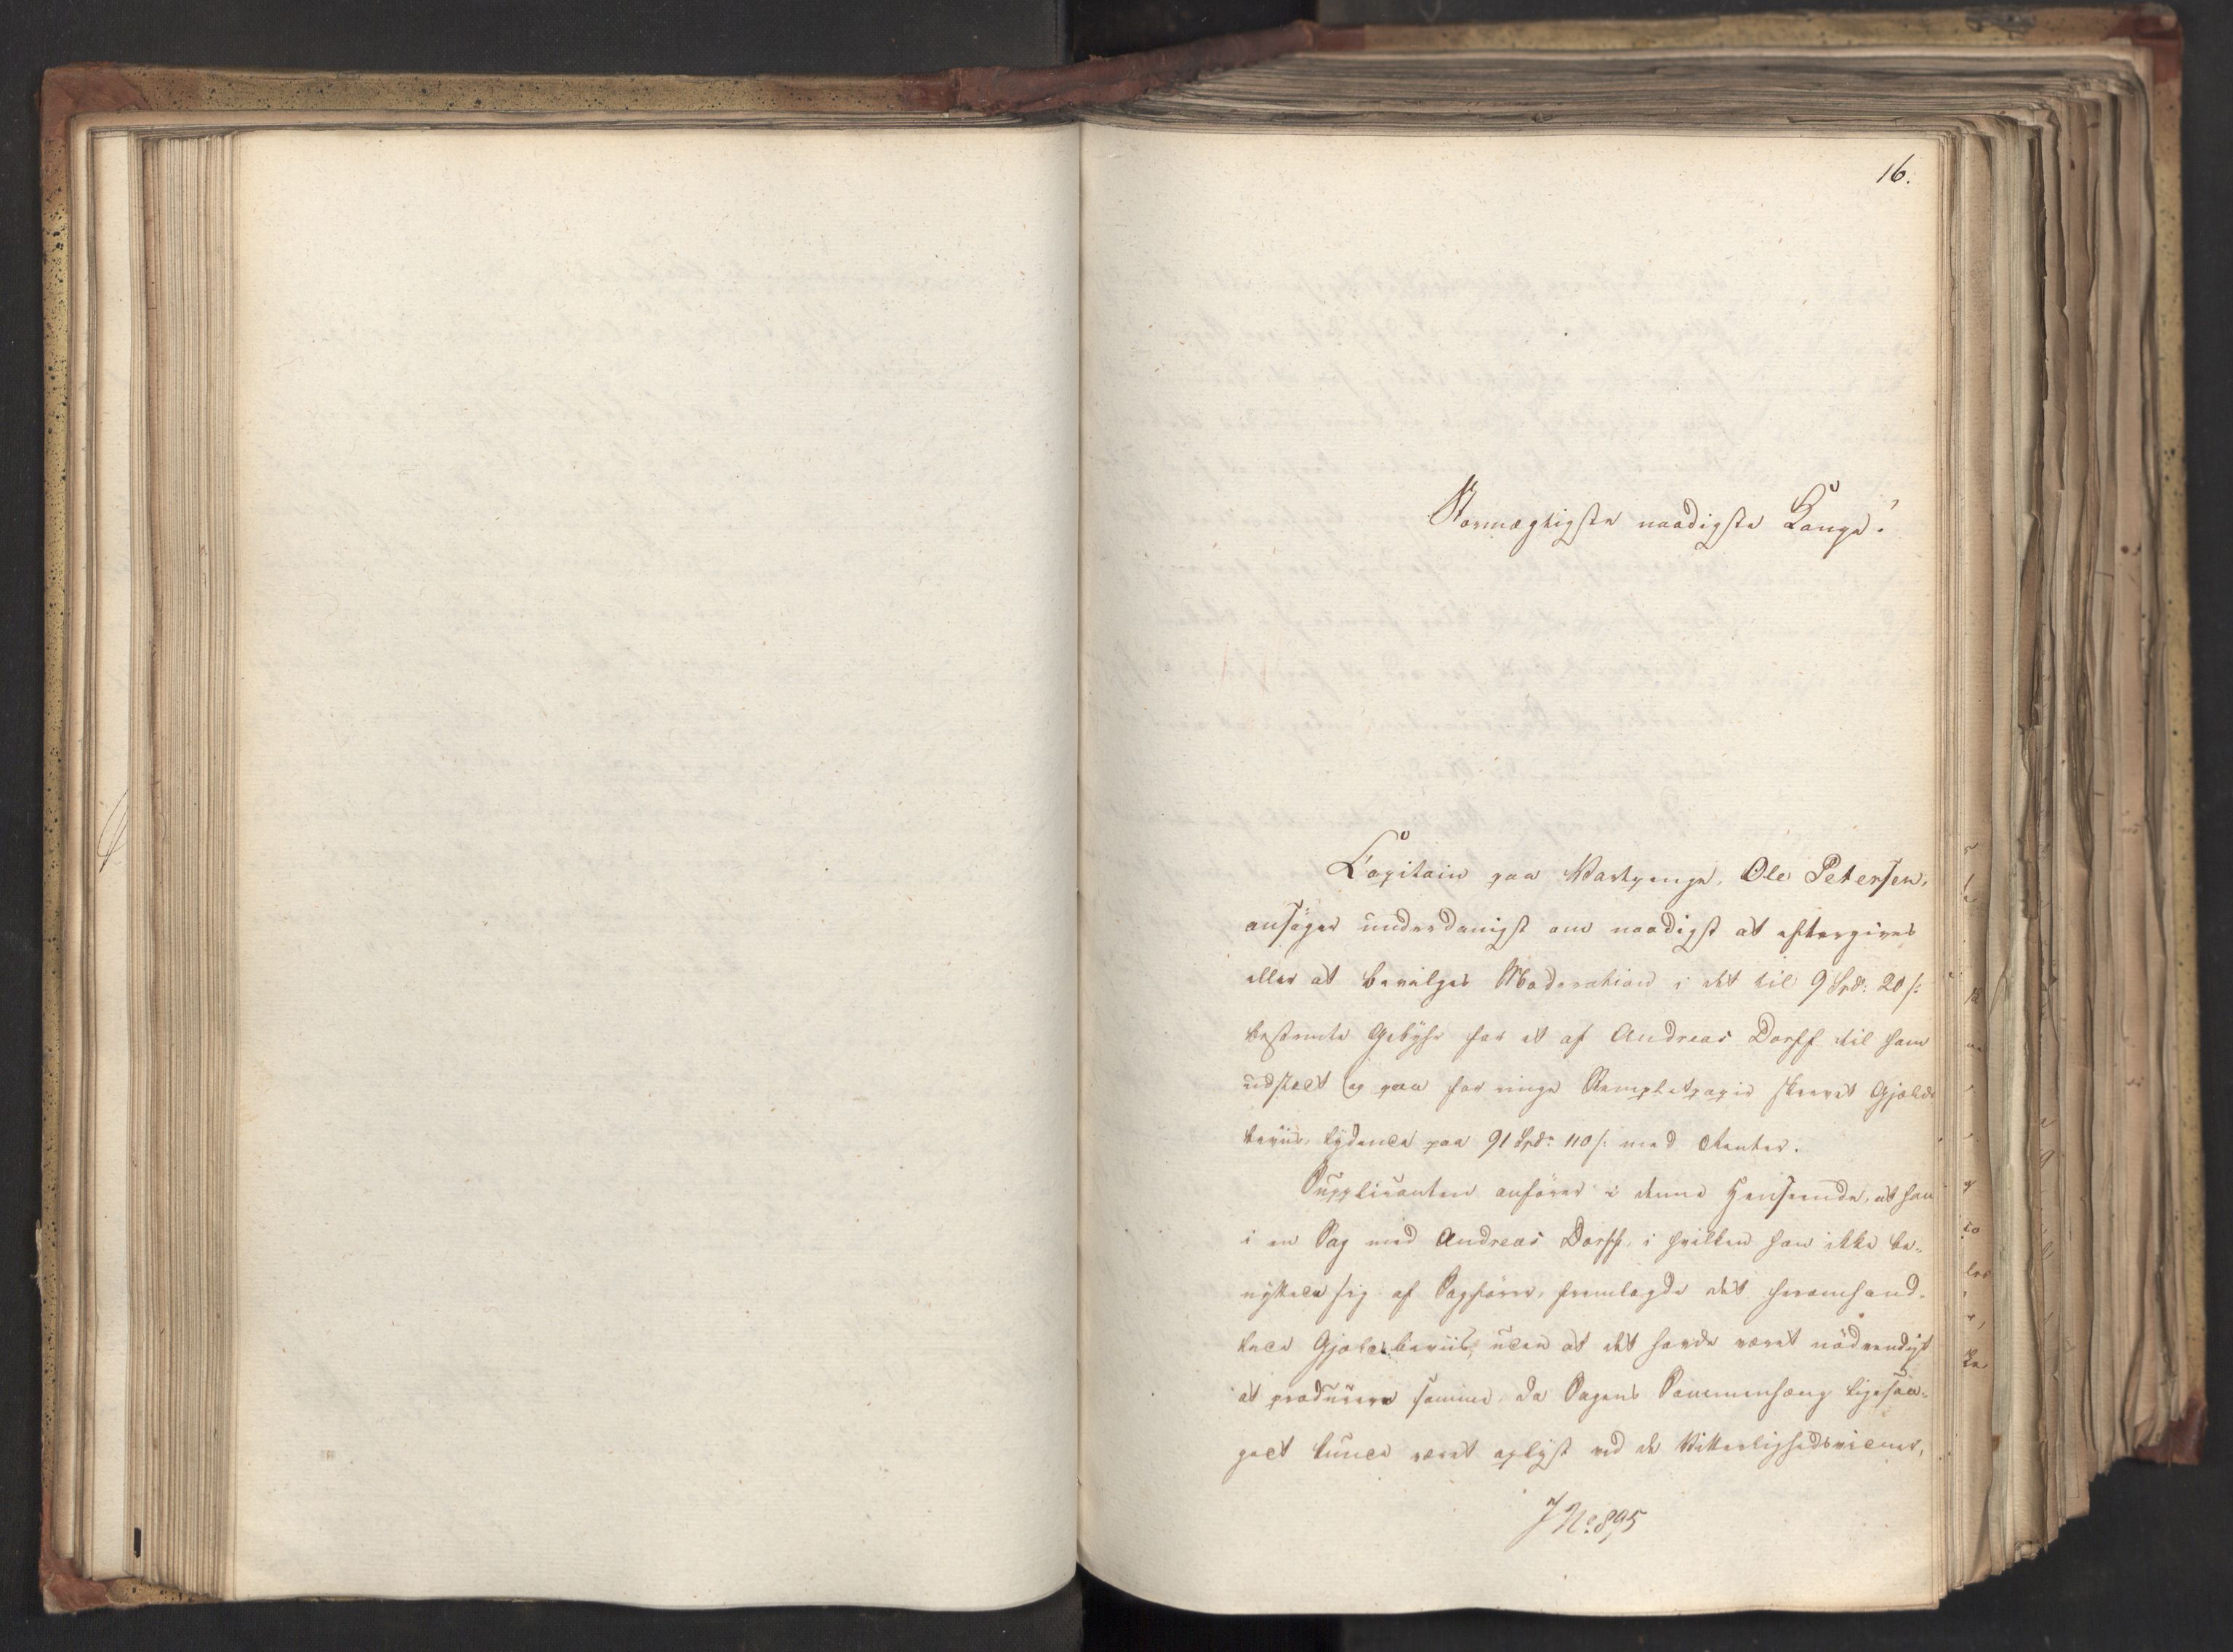 16.
Stormægtigste naadigste Konge!
Capitain paa Vartpenge, Ole Petersen,
ansøger underdanigst om naadigst at eftergives
eller at bevilges Moderation i det til 9 Spd: 20 s:
bestemte Gebyhr for et af Andreas Dorff til ham
udstedt og paa for ringe Stemplet papir skrevet Gjelds
beviis, lydende paa 91 Spd: 110 s: med Renter.
Supplicanten anfører i denne Henseende, at han
i en Sag med Andreas Dorff, i hvilken han ikke be-
nyttede sig af Sagfører, fremlagde det heromhand-
lede Gjeldsbeviis, uden at det havde været nødvendigt
at producere samme, da Sagens Sammenhæng ligesaa-
godt kunde været oplyst ved de Vitterlighedsvidner,
J No: 895